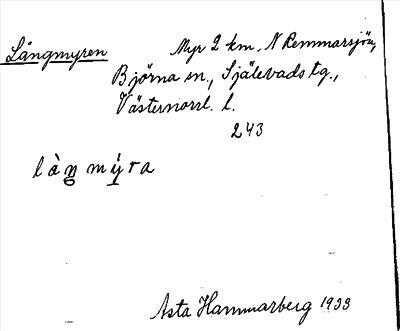 Långmyren Myr 2 km. N Remmarsjön,
Björna sn., Själevads tg.,
Västernorrl. l.
243
làŋmy̌ra
Asta Hammarberg 1933